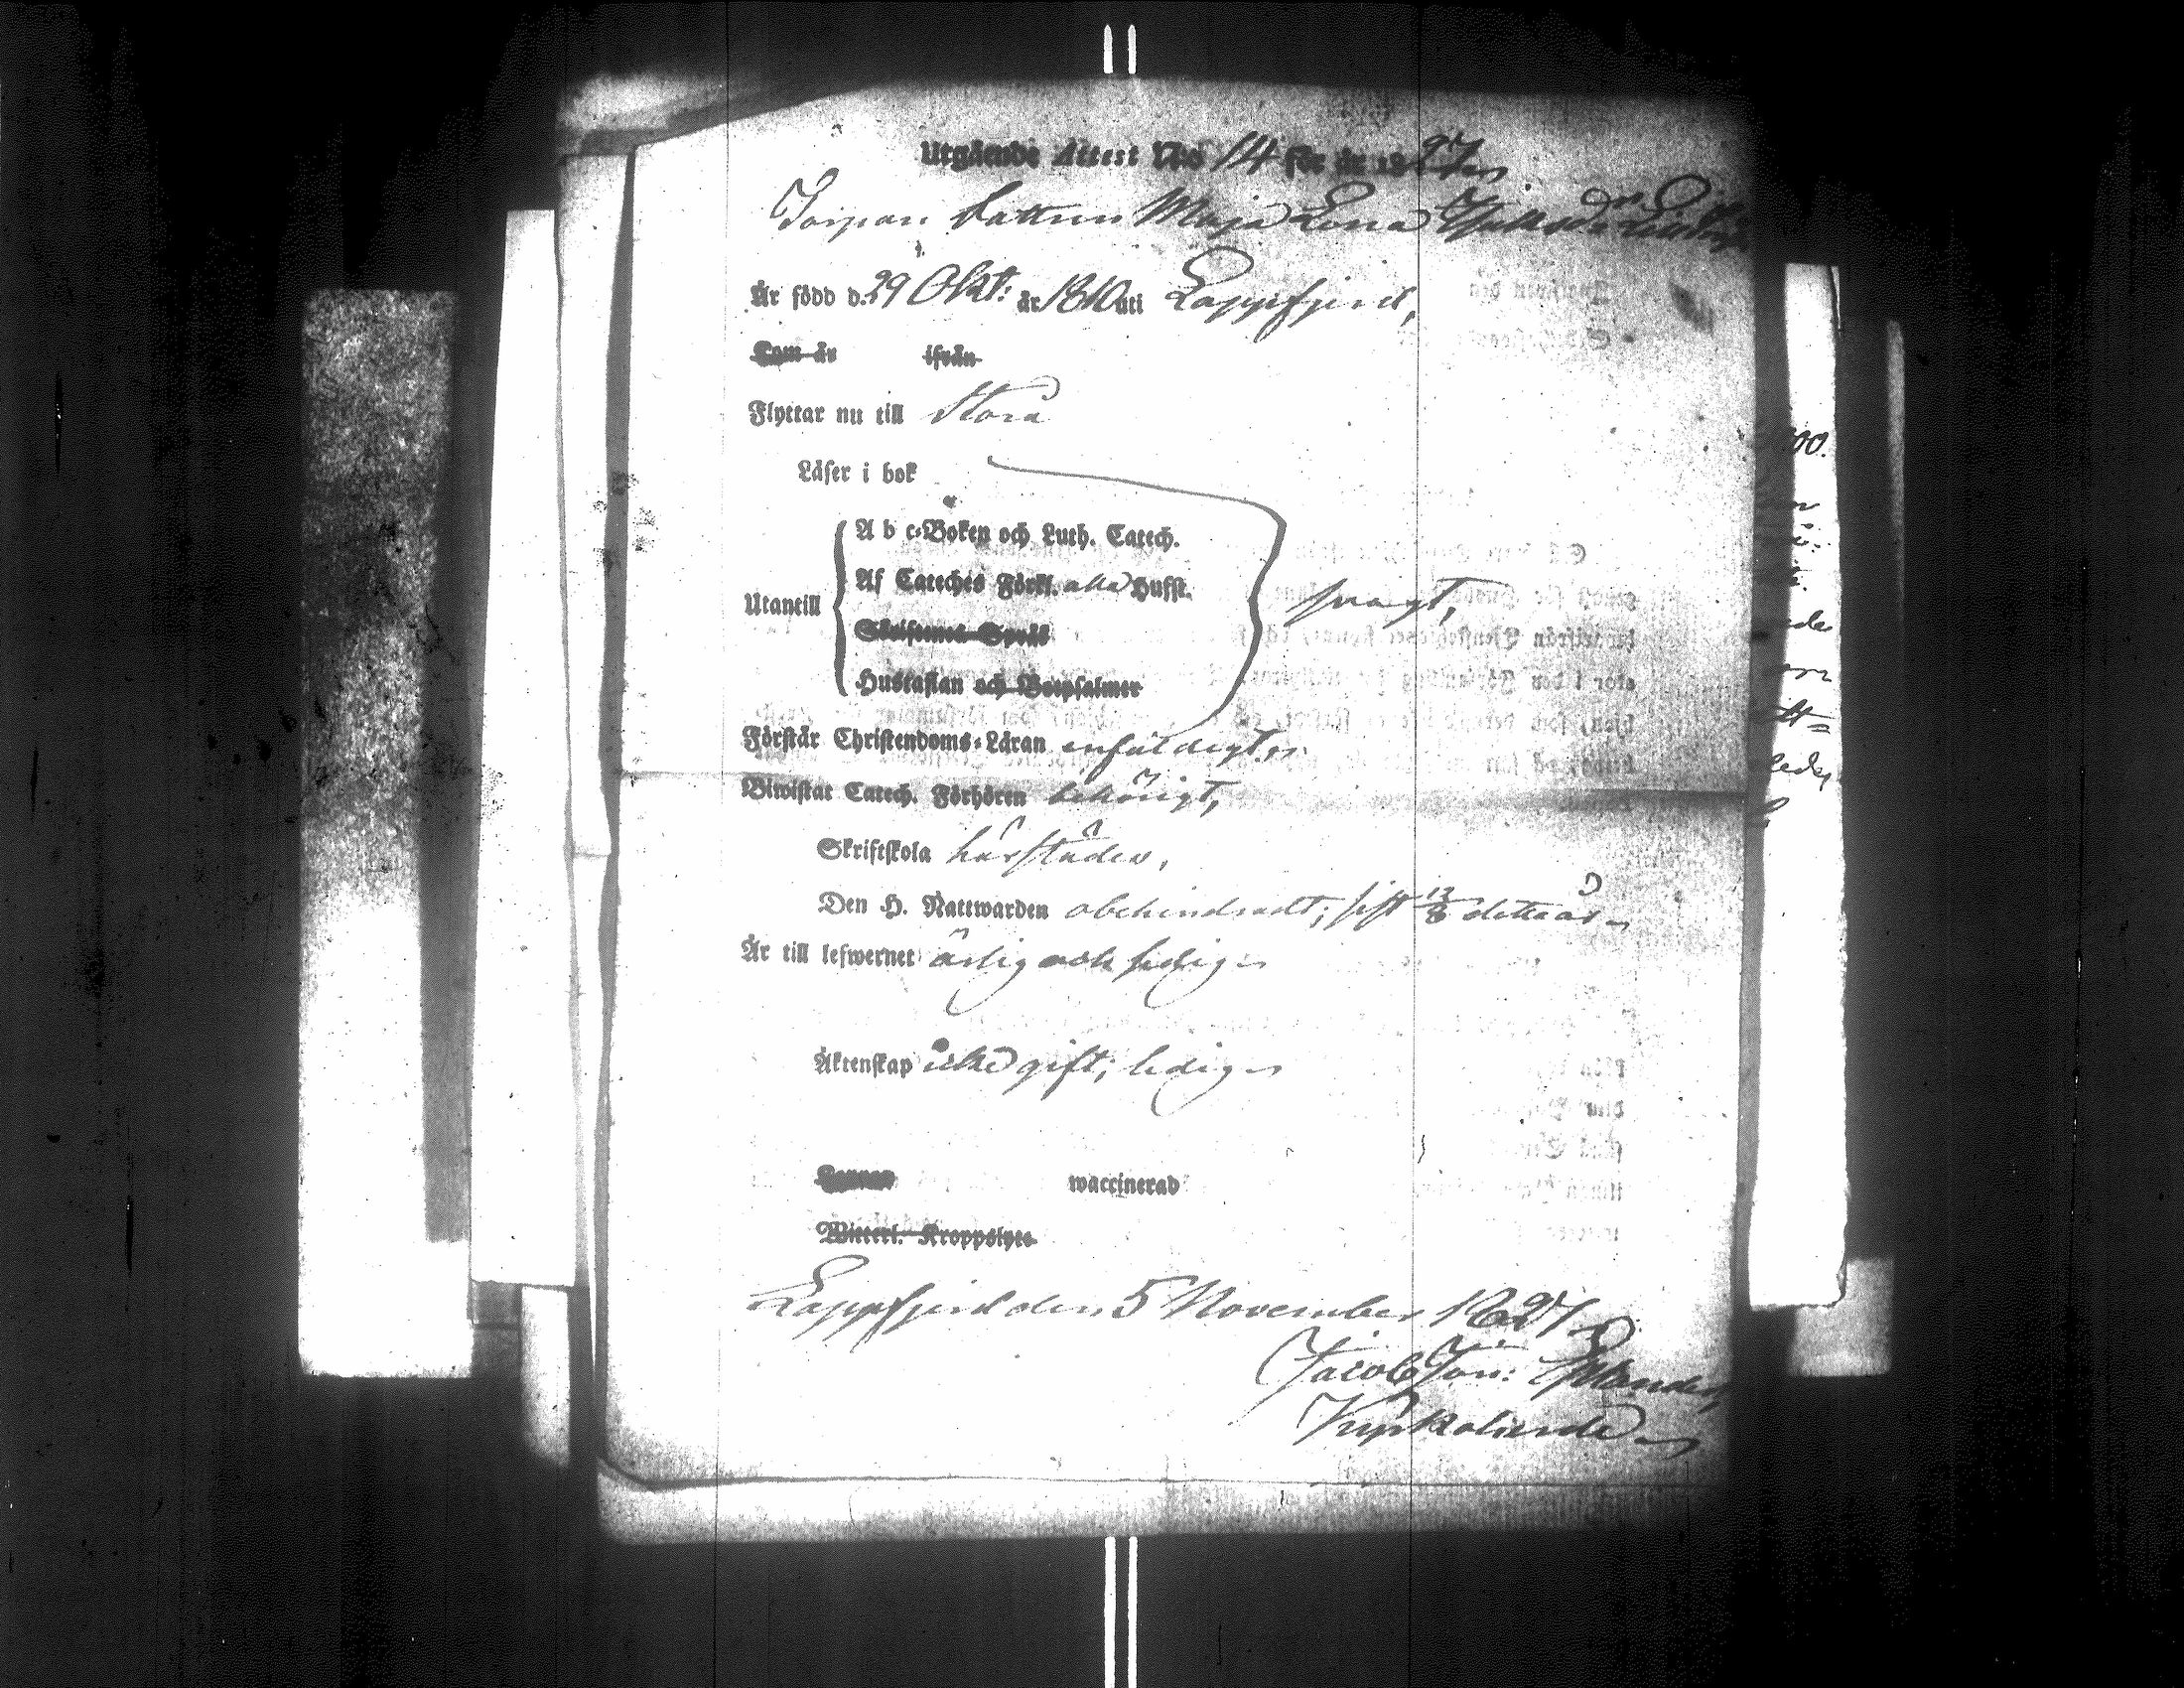 Utgående Attest N:o 14 för år 1827
Torpare dottren Maja Lena
Är född d. 29 Okt: år 1810 uti Lappfjerd,
Kom år ifrån
Flyttar nu till Storå
Läser i bok
A b c-Boken och Luth. Catech.
Af Cateches Förkl. alla Hufst.
Utantill
svagt,
Skriftenes Språk
Hustaflan och Botpsalmer
Förstår Christendoms-Läran enfaldigt,
Biwistat Catech. Förhören behörigt,
Skriftskola härstädes,
Den H. Nattwarden obehindradt; sist 12/8 detta år
Är till lefwernet ärlig och sedig
Äktenskap icke gift; ledig
Koppor waccinerad
Witterl. Kroppslyte
Lappfjerd den 5 November 1827
Jacob Jon: